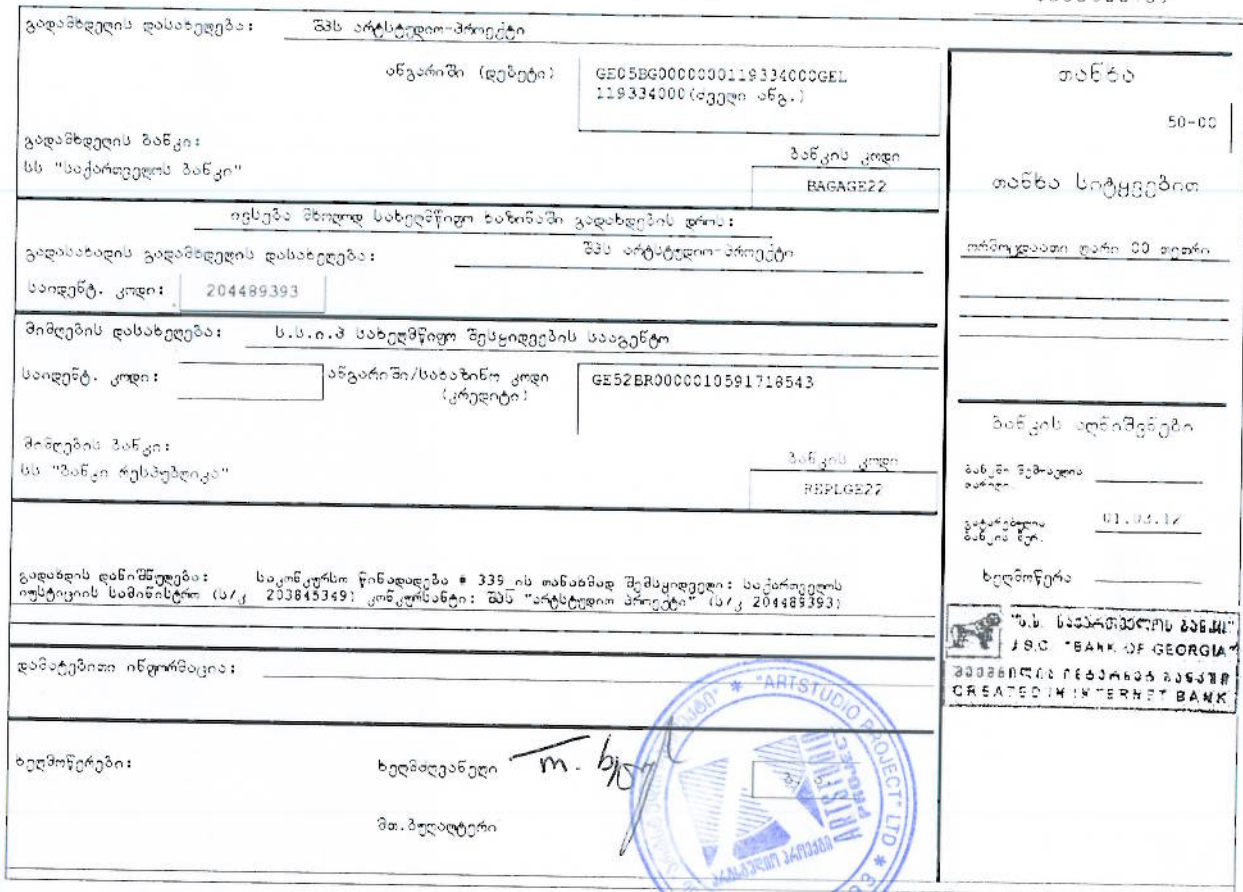 გადამხდელის დასახელება: შპს არტსტუდიო-პროექტი
ანგარიში (დებეტი) GE05BG0000000119334000GEL
119334000(ძველი ანგ.)
გადამხდელის ბანკი:
სს "საქართველოს ბანკი"
ბანკის კოდი
BAGAGE22
ივსება მხოლოდ სახელმწიფო ხაზინაში გადახდების დროს:
გადასახადის გადამხდელის დასახელება: შპს არტსტუდიო-პროექტი
საიდენტ. კოდი: 204489393
მიმღების დასახელება: ს.ს.ი.პ სახელმწიფო შესყიდვების სააგენტო
საიდენტ. კოდი: ანგარიში/სახაზინო კოდი GE52BR0000010591718543
(კრედიტი)
მიმღების ბანკი:
სს "ბანკი რესპუბლიკა"
ბანკის კოდი
REPLGE22
გადახდის დანიშნულება: საკონკურსო წინადადება # 339 ის თანახმად შემსყიდველი: საქართველოს
იუსტიციის სამინისტრო (ს/კ 203845349) კონკურსანტი: შპს "არტსტუდიო პროექტი" (ს/კ 204489393)
დამატებითი ინფორმაცია:
ხელმოწერები: ხელმძღვანელი
მთ.ბუღალტერი
თანხა
50-00
თანხა სიტყვებით
ორმოცდაათი ლარი 00 თეთრი
ბანკის აღნიშვნები
ბანკში შემოსვლის
თარიღი.
გატარებულია 01.03.12
ბანკის მერ.
ხელმოწერა
"ს.ს. საქართველოს ბანკი"
J.S.C. "BANK OF GEORGIA"
შექმნილია ინტერნეტ ბანკში
CREATED IN INTERNET BANK
* "ARTSTUDIO PROJECT" LTD *
ARTSTUDIO
PROJECT
არტსტუდიო პროექტი